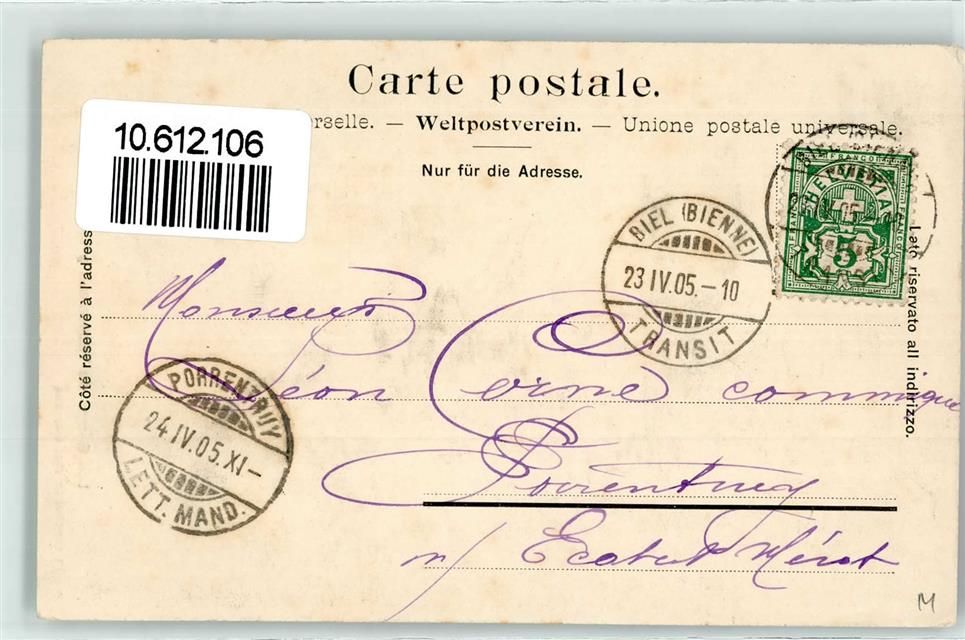 Carte postale.
rselle. — Weltpostverein. — Unione postale universale.
Nur für die Adresse.
10.612.106
HELVETIA
FRANCO
5
BIEL (BIENNE)
23 IV.05.-10
TRANSIT
Côté réservé à l'adress
Lato riservato all indirizzo.
Monsieur
Léon Corne commique
Porrentruy
PORRENTRUY
24.IV.05.XI-
LETT. MAND.
M